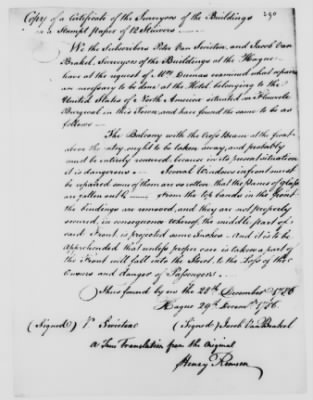 Copy of a Certificate of the Surveyors of the Buildings
on a Stampt Paper of 12 Stuivers
290
We the Subscribers Peter Van Swieten, and Jacob Van
Brakel, Surveyors of the Buildings at the Hague
have at the request of Mr Dumas examined what repairs
are necessary to be done at the Hotel belonging to the
United States of North America situated on Fluweele
Burgwal in this Town, and have found the same to be as
follows
The Balcony with the Cross Beam at the front
above the entry, ought to be taken away, and probably
must be entirely renewed, because in its present situation
it is dangerous. Several Windows in front must
be repaired some of them are so rotten that the Panes of glass
are fallen out. From the top bands in the front
the bindings are removed, and they are not properly
secured, in consequence whereof, the middle part of
said Front is projected some Inches. And it is to be
apprehended that unless proper care is taken a part of
the Front will fall into the Street, to the Loss of the
Owners and danger of Passengers.
Thus found by us the 28th December 1786
Hague 29th Decemr. 1786.
(Signed) P. Swieten (Signed) Jacob Van Brakel
A True Translation from the Original
Henry Remsen